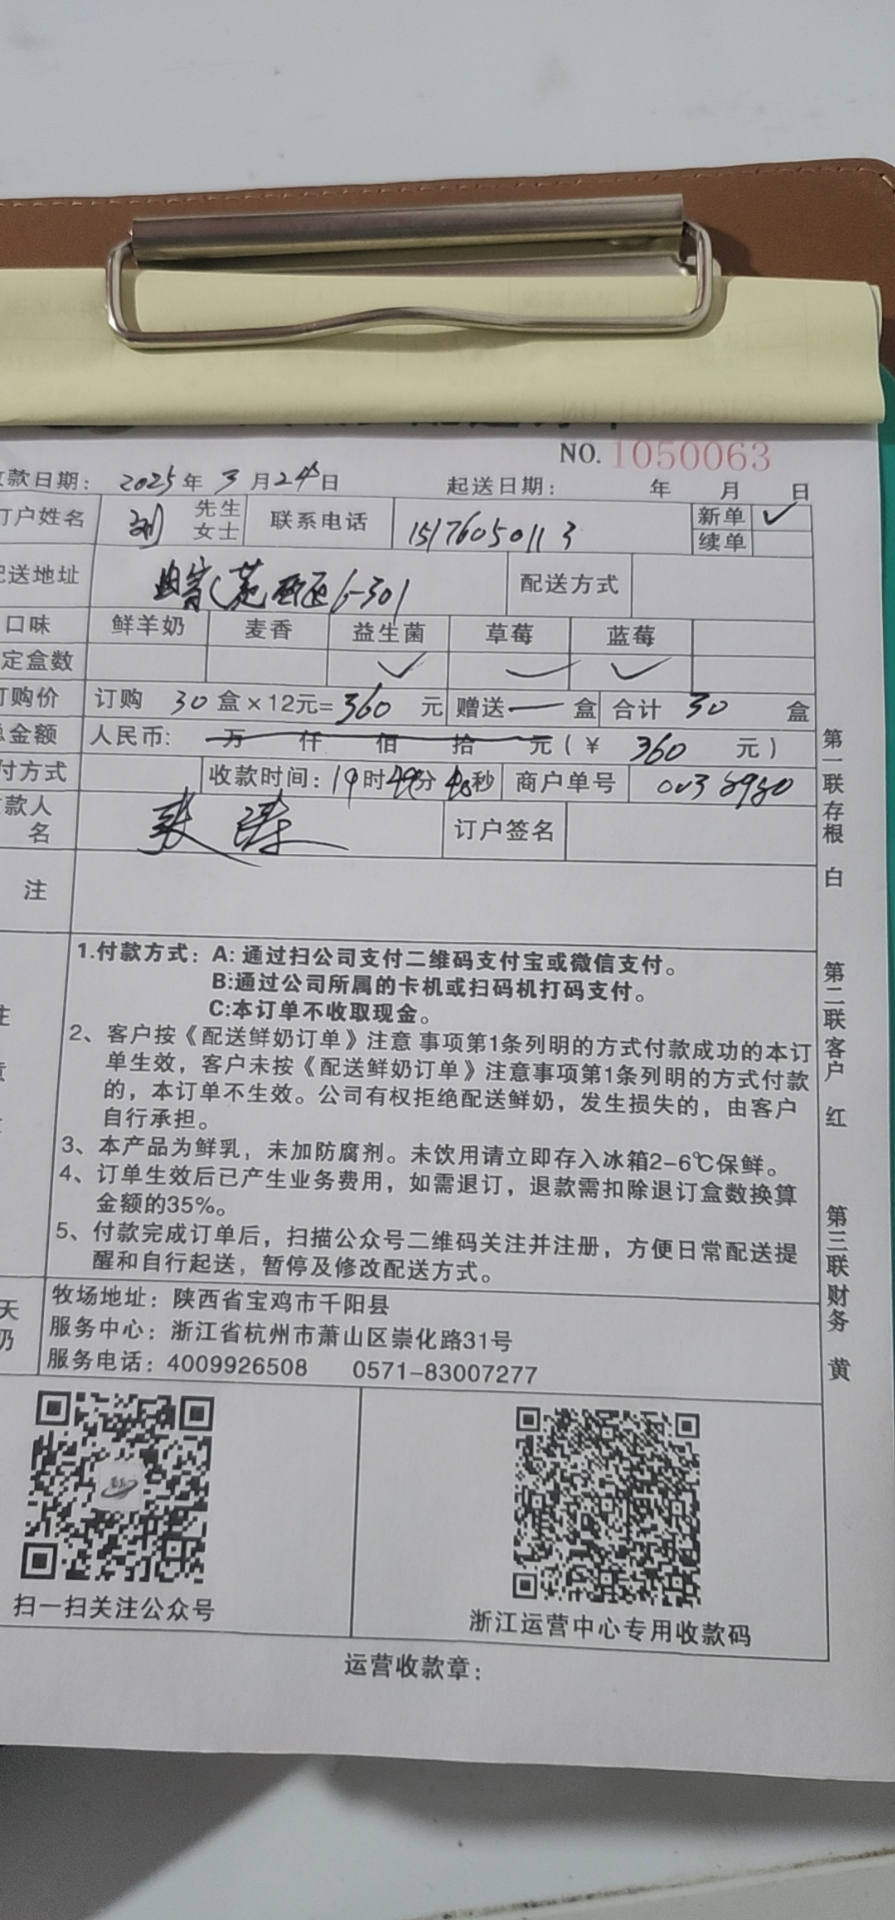 NO. 1050063
款日期: 2025年3月24日 起送日期: 年 月 日
订户姓名 刘 先生 女士 联系电话 15176050113 新单 ✓ 续单
送地址 6-301 配送方式
口味 鲜羊奶 麦香 益生菌 草莓 蓝莓
定盒数 ✓ ✓ ✓
订购价 订购 30 盒×12元=360 元 赠送 — 盒 合计 30 盒
总金额 人民币: 万 仟 佰 拾 元(¥ 360 元)
付方式 收款时间: 19时49分48秒 商户单号 0038980
款人 名 张涛 订户签名
注
1.付款方式: A: 通过扫公司支付二维码支付宝或微信支付。
B:通过公司所属的卡机或扫码机打码支付。
C:本订单不收取现金。
2、客户按《配送鲜奶订单》注意 事项第1条列明的方式付款成功的本订
单生效，客户未按《配送鲜奶订单》注意事项第1条列明的方式付款
的，本订单不生效。公司有权拒绝配送鲜奶，发生损失的，由客户
自行承担。
3、本产品为鲜乳，未加防腐剂。未饮用请立即存入冰箱2-6℃保鲜。
4、订单生效后已产生业务费用，如需退订，退款需扣除退订盒数换算
金额的35%。
5、付款完成订单后，扫描公众号二维码关注并注册，方便日常配送提
醒和自行起送，暂停及修改配送方式。
牧场地址: 陕西省宝鸡市千阳县
服务中心: 浙江省杭州市萧山区崇化路31号
服务电话: 4009926508 0571-83007277
扫一扫关注公众号
浙江运营中心专用收款码
运营收款章:
第一联 存根 白
第二联 客户 红
第三联 财务 黄